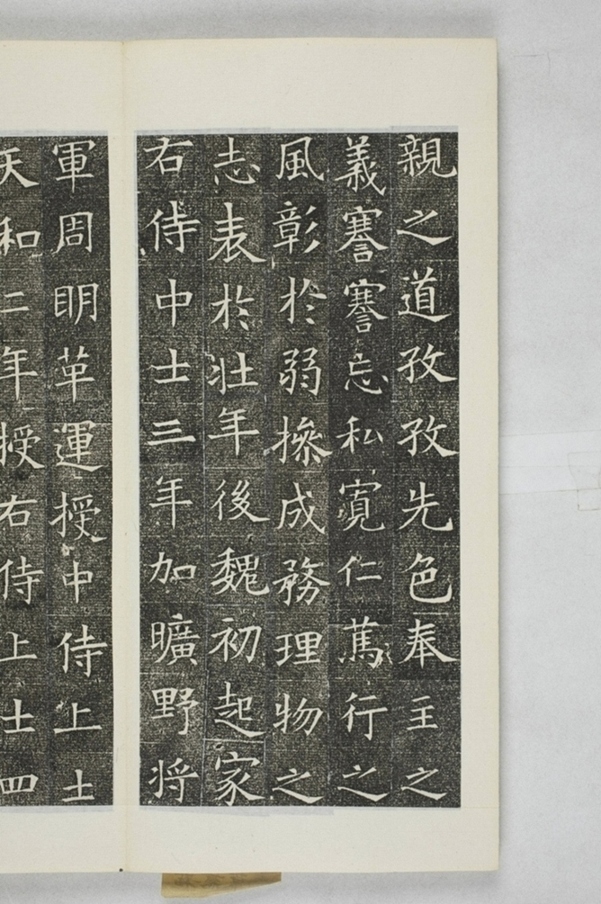 親之道孜孜先色奉主之
義謇謇忘私寬仁篤行之
風彰於弱操成務理物之
志表於壯年後魏初起家
右侍中士三年加曠野将
軍周明革運授中侍上士
天和二年授右侍上士四